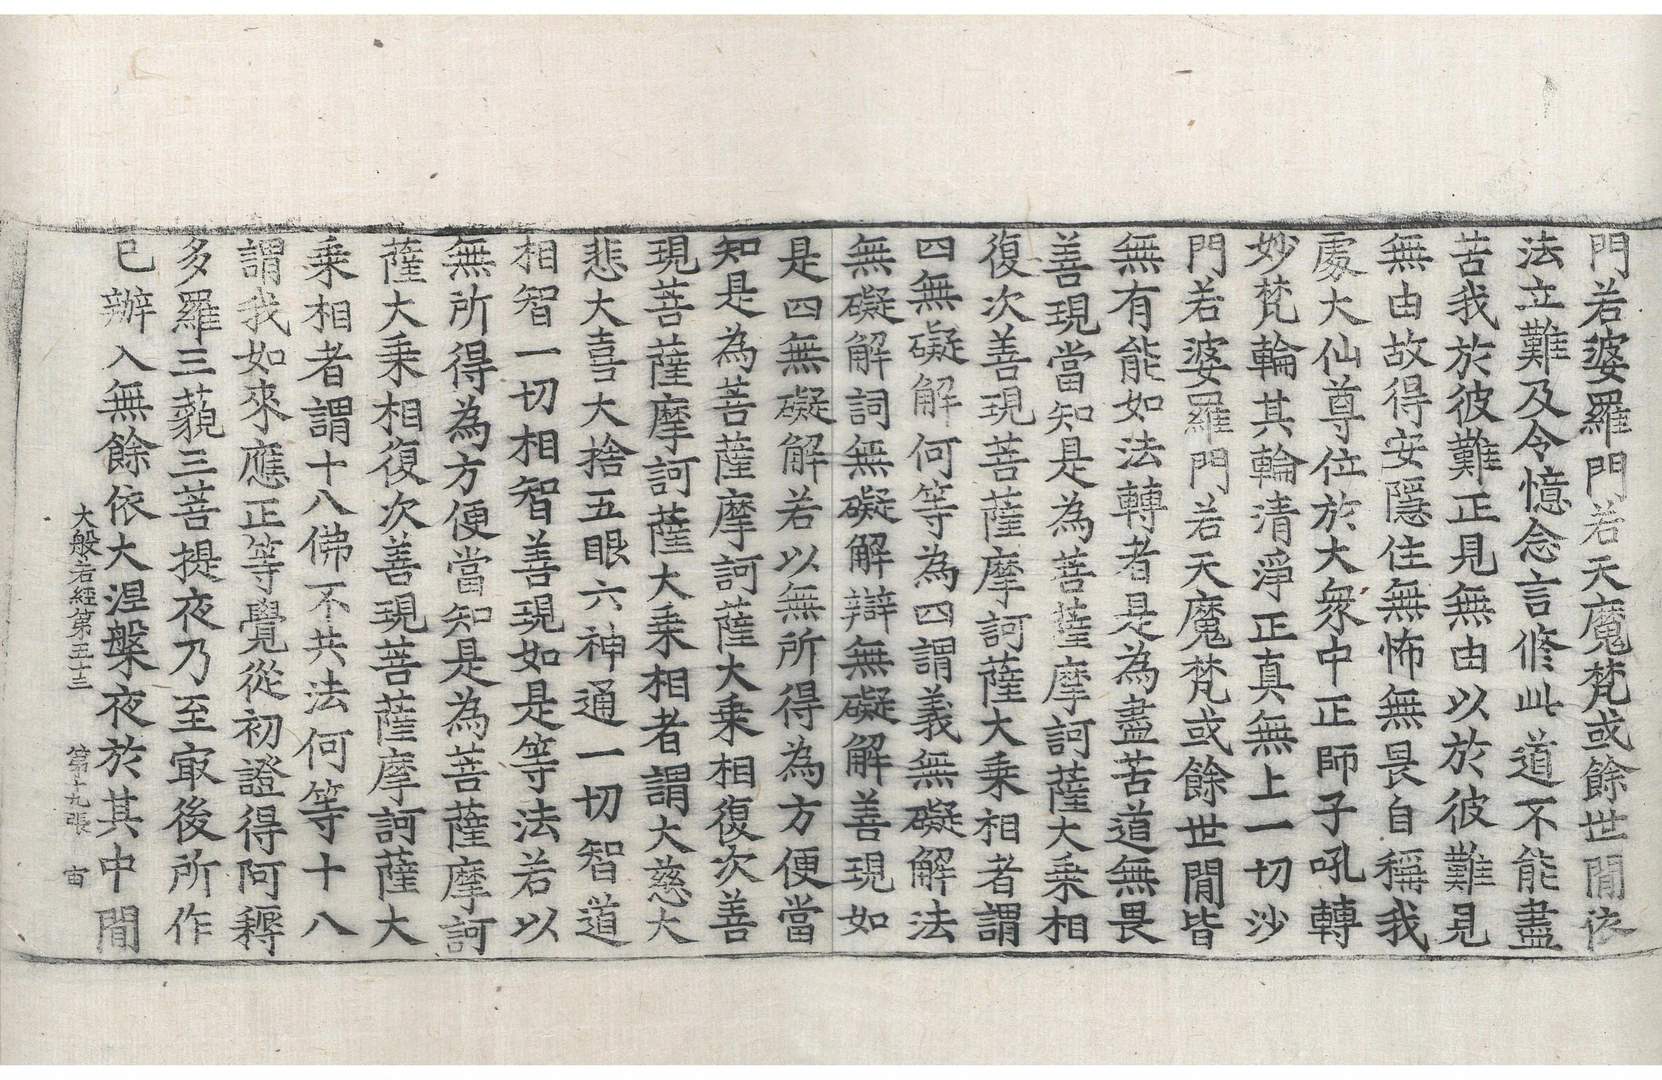 門若婆羅門若天魔梵或餘世間依
法立難及令憶念言修此道不能盡
苦我於彼難正見無由以於彼難見
無由故得安隱住無怖無畏自稱我
處大仙尊位於大衆中正師子吼轉
妙梵輪其輪清淨正真無上一切沙
門若婆羅門若天魔梵或餘世間皆
無有能如法轉者是為盡苦道無畏
善現當知是為菩薩摩訶薩大乗相
復次善現菩薩摩訶薩大乗相者謂
四無礙解何等為四謂義無礙解法
無礙解詞無礙解辯無礙解善現如
是四無礙解若以無所得為方便當
知是為菩薩摩訶薩大乗相復次善
現菩薩摩訶薩大乗相者謂大慈大
悲大喜大捨五眼六神通一切智道
相智一切相智善現如是等法若以
無所得為方便當知是為菩薩摩訶
薩大乗相復次善現菩薩摩訶薩大
乗相者謂十八佛不共法何等十八
謂我如來應正等覺從初證得阿耨
多羅三藐三菩提夜乃至㝡後所作
已辦入無餘依大涅槃夜於其中間
大般若經第五十三 第十九張 宙